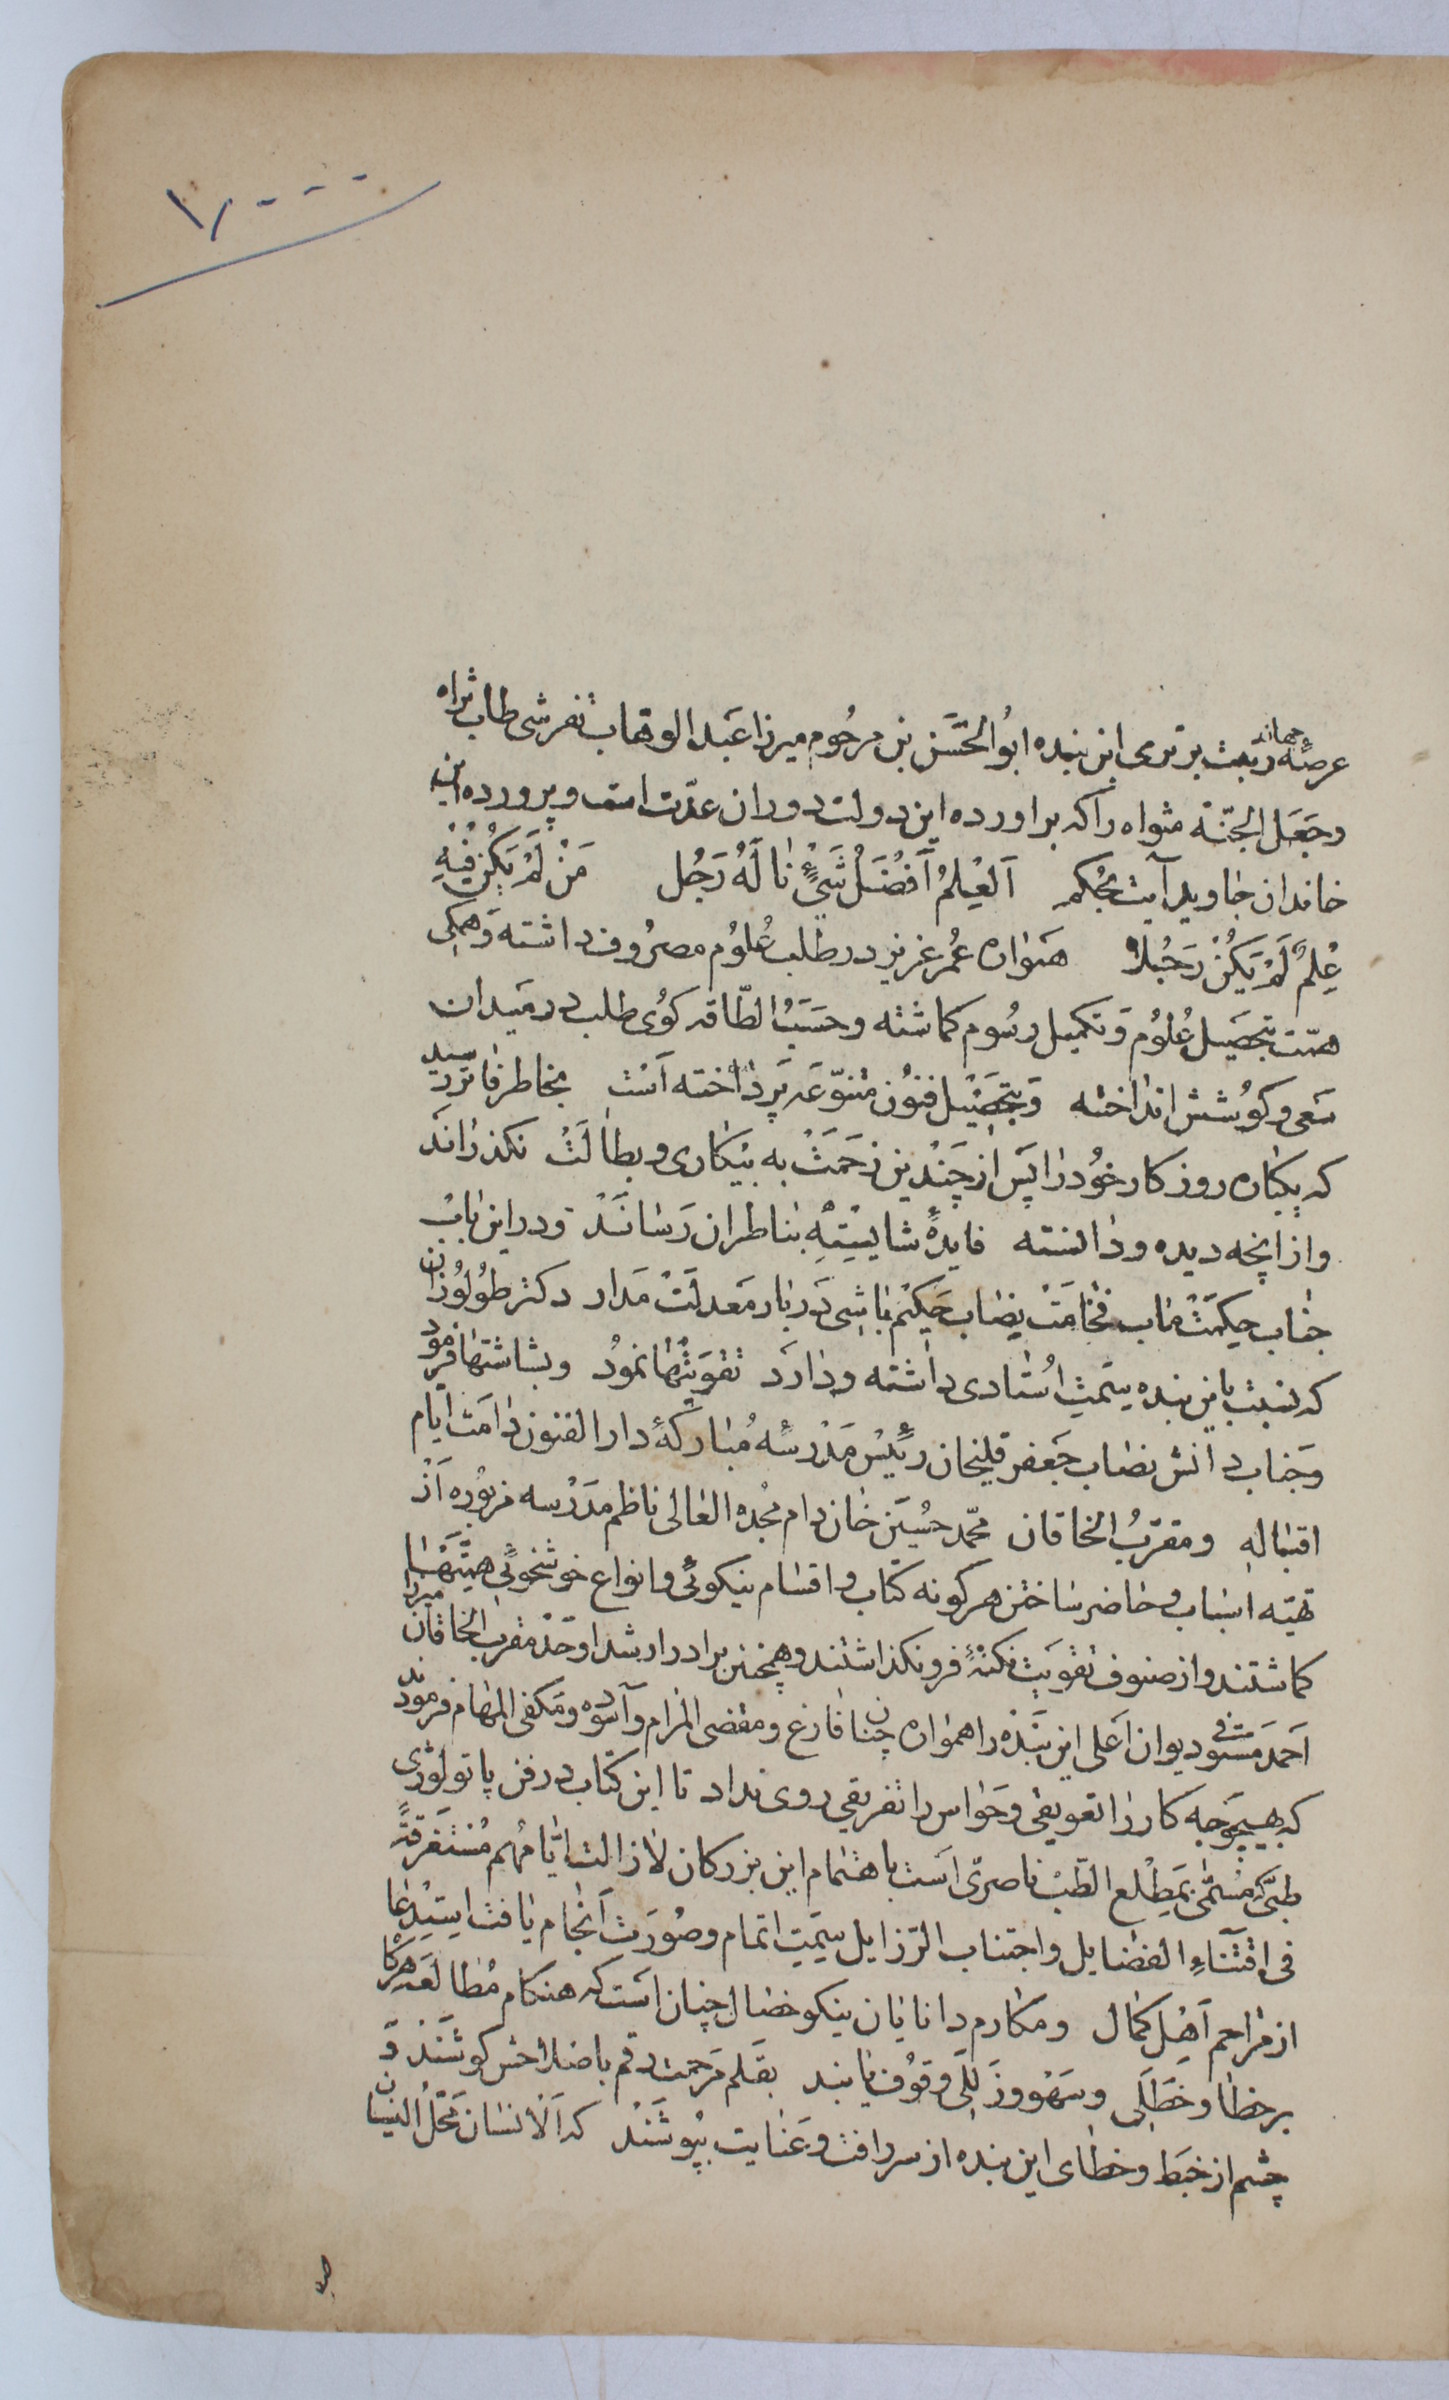 عرصهٔ جهاند تربیت برتری این بنده ابوُالحَسَن بن مرحُوم میرزا عَبد الوهاب تفرشی طاب ثراه
وجَعَل الجنّة مثواه را که براورده این دولت دوران عدّت است و پرورده این
خاندان جاوید آیت بحُکم اَلعِلمُ اَفضَلُ شَیءٍ نالَهُ رَجُل مَن لَم یَکُن فیهِ
عِلمٌ لَم یَکُن رَجُلا همَواره عُمر عزیز در طلب عُلوُم مصرُوف داشته وَ همکی
همّت بتحصیل عُلوُم وَ تکمیل رسُوم کماشته و حَسَبُ الطّاقه کوُی طلب در میدان
سَعی و کوُشش انداخته وَ بتحصَیل فنوُن متنوّعَه پَرداخته اَست بخاطر فاتر رسید
که یکباره روزکار خوُد را پَس از چَندین زحَمَت به بیکاری و بطالَت نکذراند
و از انچه دیده و دانسته فایدهٔ شایسته بناظران رَسانَد و در این باب
جناب حِکمَت ماب فخامَت نِصاب حَکیم باشی دَربار مَعدلَت مَدار دکتر طوُلوُزان
که نسبت باین بنده سِمَتِ اسُتادی داشته و دارَد تقویَتها نموُد و بشاشتها فرمود
وَ جناب دانش نصاب جَعفر قلیخان رئیس مَدرسُه مُبارکهٔ دار الفنون دامَت ایّام
اقباله و مقرّبُ الخاقان محمّد حسُیَن خان دام مجُده العالی ناظم مدَرسه مزبوُره اَز
تهیّه اسباب و حاضر ساختن هر کونه کتاب و اقسام نیکوئی و انواع خوشخوئی همّتها
کماشتند و از صنوف تقویَت نکتهٔ فرو نکذاشتند و همچنین برادر ارشد اوحَد مقرب الخاقان میرزا
احمَد مستوفی دیوان اَعلی این بنَده را همواره چنان فارغ و مقضی المرام وآسوده و مکفی المهام فرمودند
که بهیچوجه کار را تعویقی و حَواس را تفریقی روی نداد تا این کتاب در فن پاتولوژی
طبّی که مُسَمّی بمَطلع الطّب ناصری است باهتمام این بزرکان لازالت ایّامهُم مُستَغرقةً
فی اقتناءِ الفضایل و اجتناب الرّزایل سِمَتِ اتمام و صوُرَت اَنجام یافت استِدعا
از مراحم اَهل کمال و مکارم دانایان نیکو خصال چنان است که هنکام مُطالعَه هرکاه
بر خطا و خطلی و سهَو و زَللی وقوُف یابند بقَلم مَرحمت رقم باصلاحش کوشَند وَ
چشم از خبَط و خطای این بنده از سر رافت و عَنایت بپوشَند که اَلانسان مَحَلُ النسیان